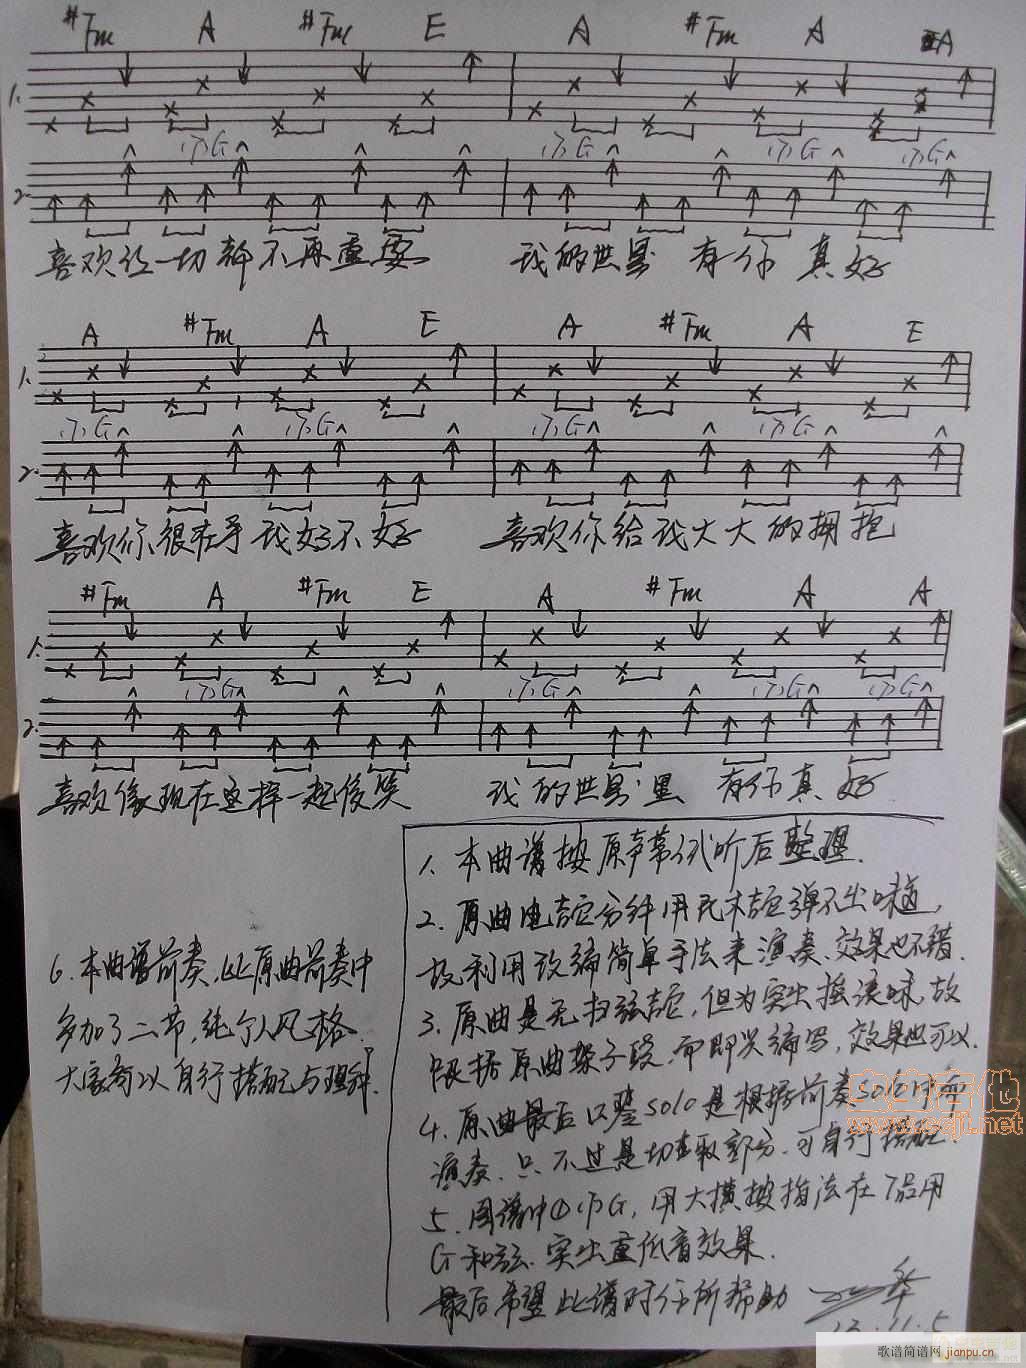 #Fm A #Fm E A #Fm A A
1.
(7)G (7)G (7)G (7)G
2.
喜欢你一切都不再重要 我的世界 有你 真好
A #Fm A E A #Fm A E
1.
(7)G (7)G (7)G (7)G
2.
喜欢你很在乎我好不好 喜欢你给我大大的拥抱
#Fm A #Fm E A #Fm A A
1.
(7)G (7)G (7)G (7)G
2.
喜欢像现在这样一起傻笑 我的世界里 有你真好
6.本曲谱前奏,比原曲前奏中
多加了二节,纯个人风格.
大家可以自行搭配与理解.
1.本曲谱按原声带试听后整理.
2.原曲电吉它分钟用民木吉它弹不出味道,
故利用改编简单手法来演奏.效果也不错.
3.原曲是无扫弦吉它,但为突出摇滚味,故
根据原曲架子段.而即兴编写,效果也可以.
4.原曲最后只差solo是根据前奏solo
演奏.只不过是切取部分.可自行搭配.
5.图谱中 (7)G,用大横按指法在7品用
G和弦.突出重低音效果.
最后希望此谱对你所帮助
华
13.11.5
www.ccjt.net
歌谱简谱网
jianpu.cn